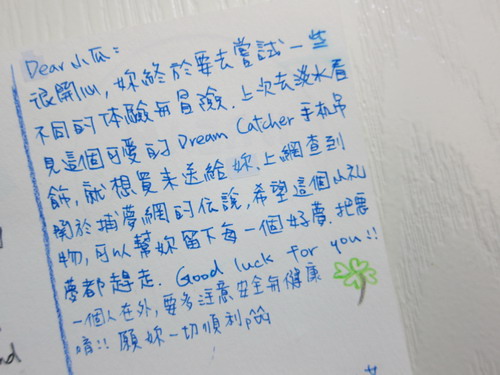 Dear 小瓜:
很開心, 妳終於要去嘗試一些
不同的体驗與冒險. 上次去淡水看
見這個可愛的 Dream Catcher 手机吊
飾, 就想買來送給妳. 上網查到
関於捕夢網的伝說, 希望這個小礼
物, 可以幫妳留下每一個好夢. 把惡
夢都趕走. Good luck for you!!
一個人在外, 要多注意安全與健康
唷!! 願妳一切順利
nd